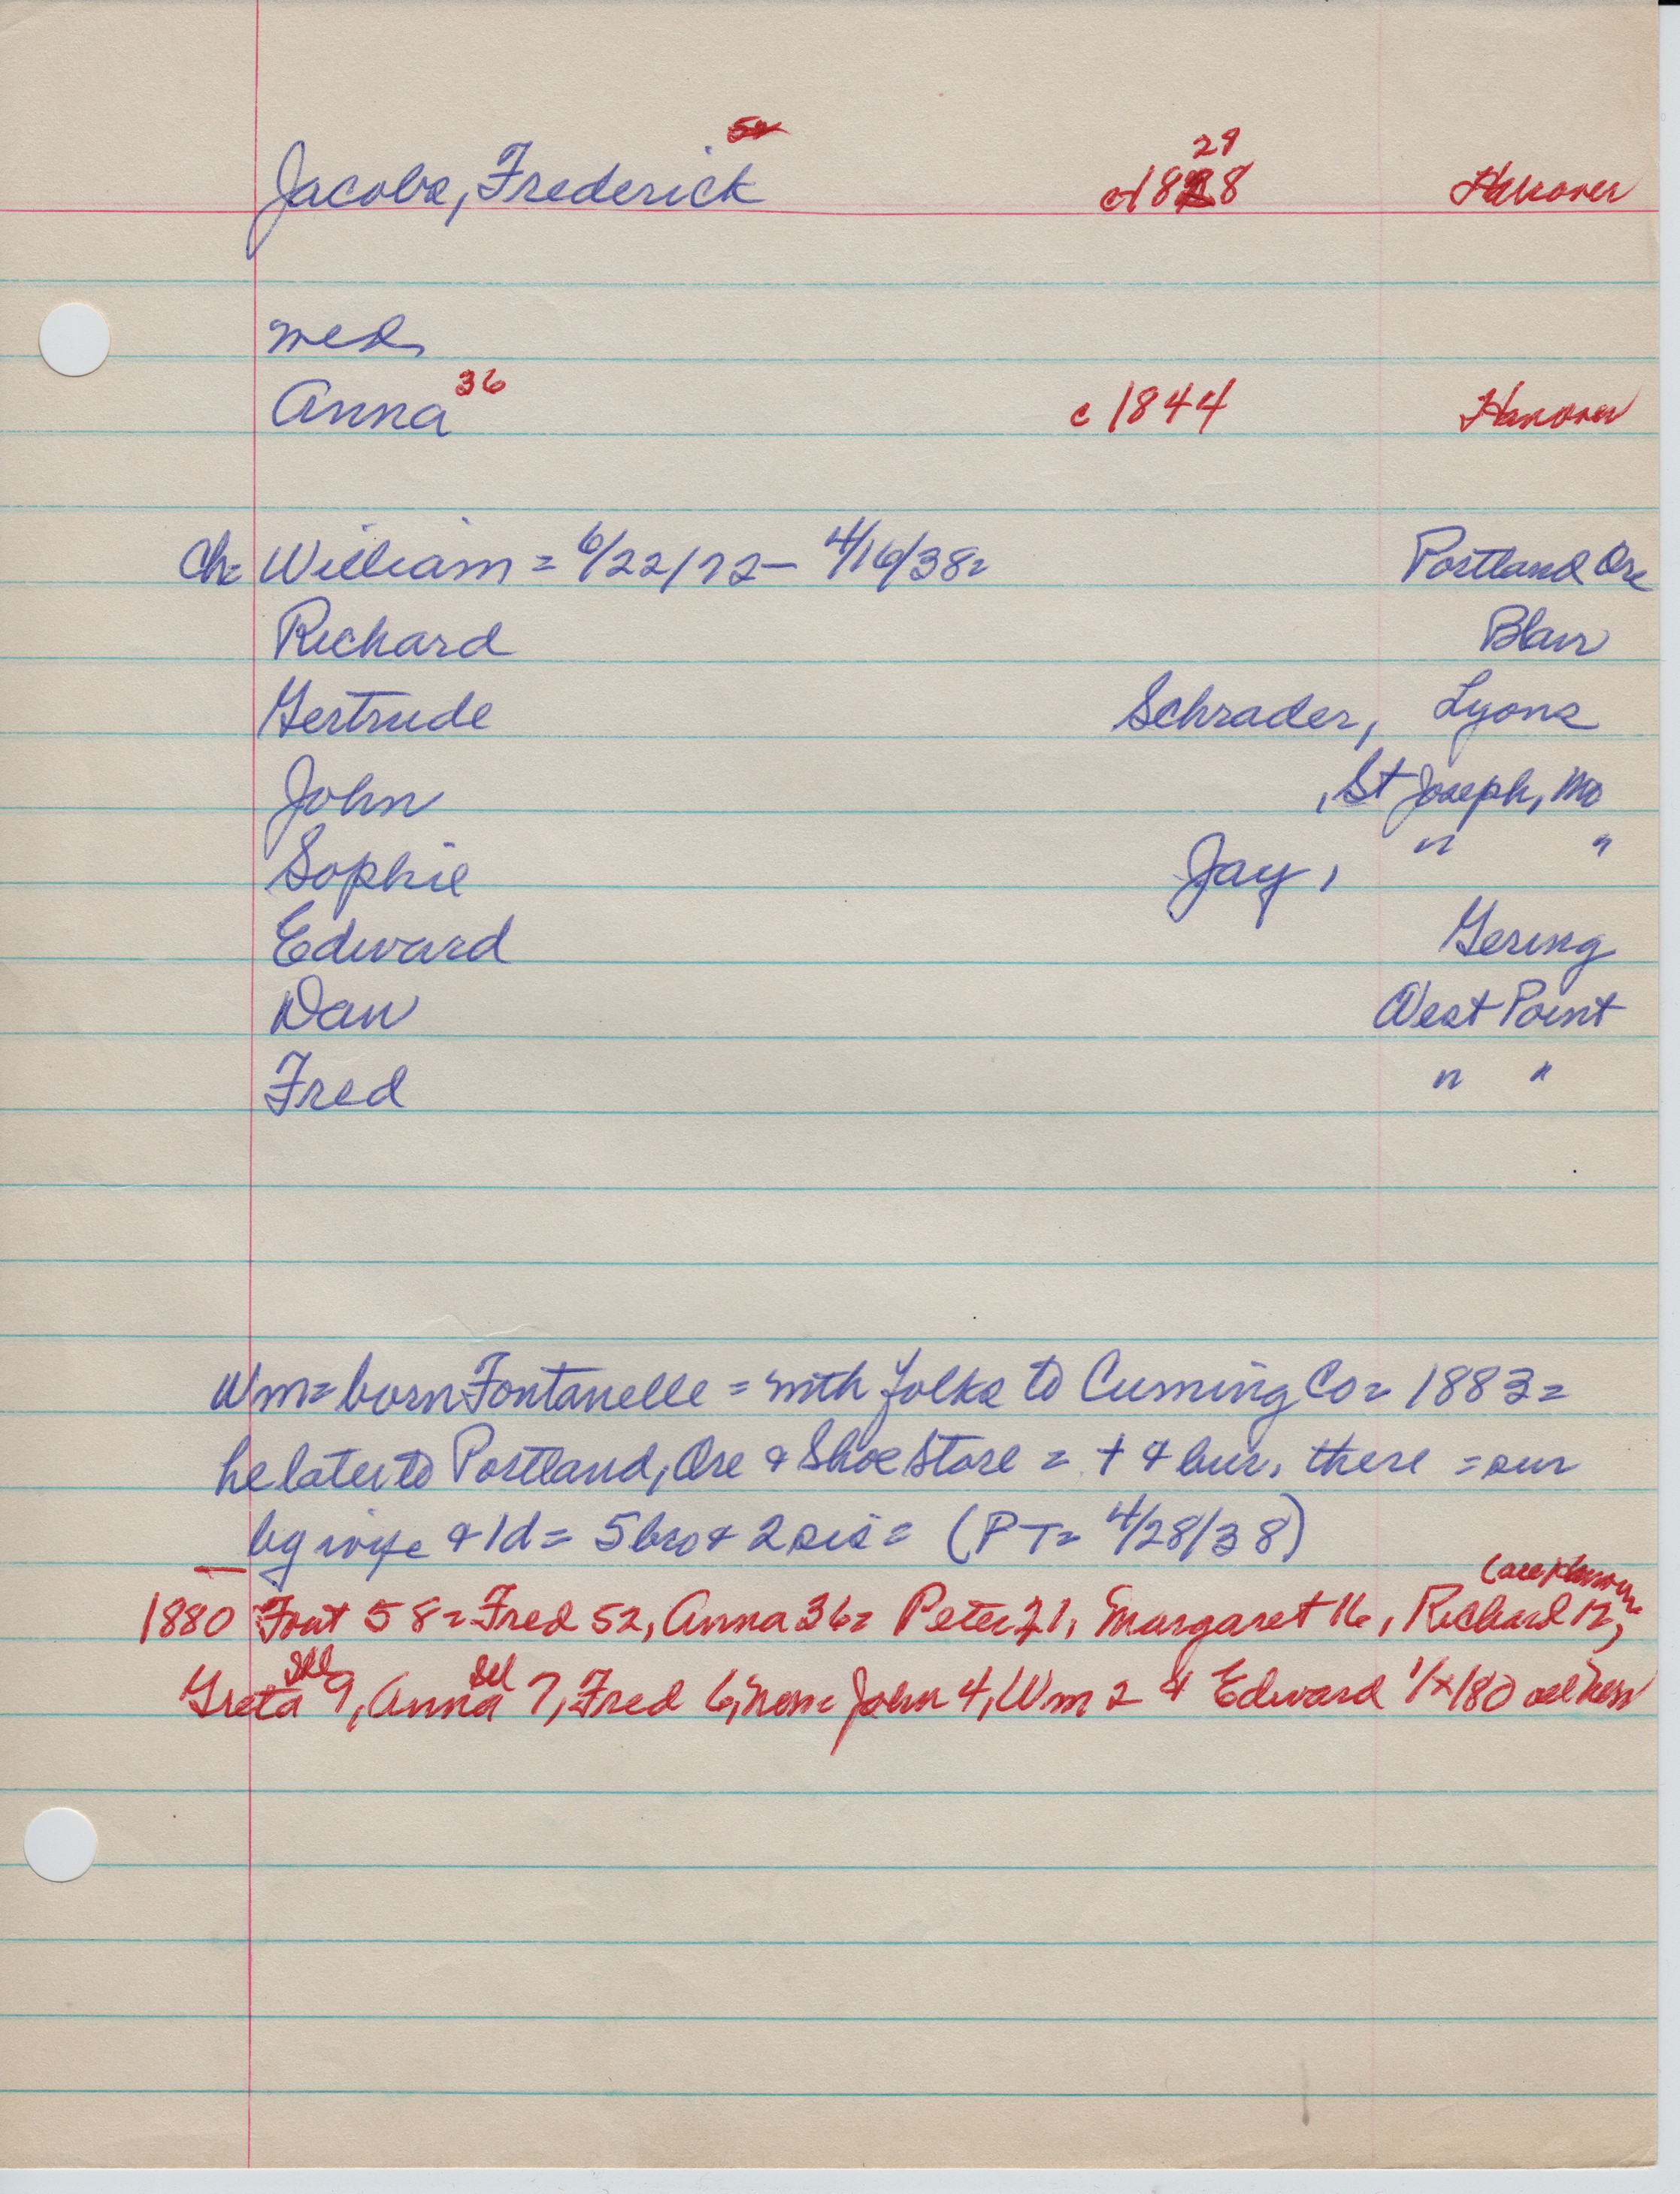 Jacobs, Frederick 52 c1828 29 Hanover
med
Anna 36 c1844 Hanover
Ch= William = 6/22/72 - 4/16/38= Portland Ore
Richard Blair
Gertrude Schrader, Lyons
John , St Joseph, Mo
Sophie Jay, " "
Edward Gering
Dan West Point
Fred " "
Wm= born Fontanelle = with folks to Cuming Co= 1883=
he later to Portland, Ore & Shoe Store = + & bur. there = sur
by wife & 1d= 5 bro & 2 sis= (PT= 4/28/38)
1880 Font 58= Fred 52, Anna 36= Peter 21, Margaret 16, Richard 12,
Greta 9, Anna 7, Fred 6, John 4, Wm 2 & Edward /80